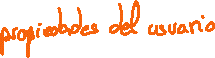 propiedades del usuario